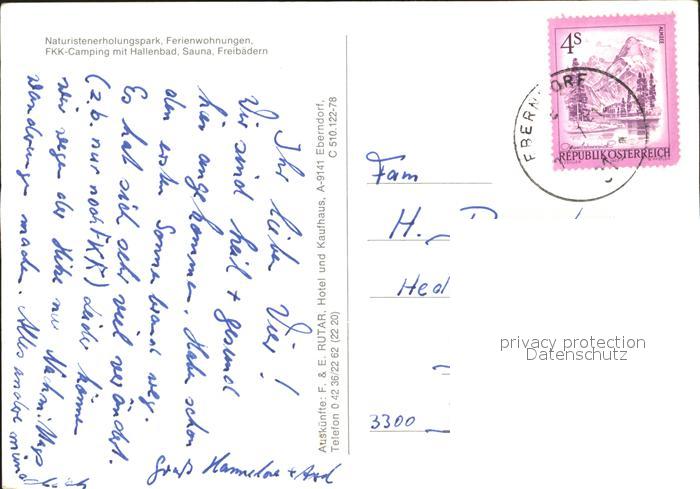 Naturistenerholungspark, Ferienwohnungen,
FKK-Camping mit Hallenbad, Sauna, Freibädern
Ihr lieben Vier!
Wir sind heil + gesund
hier angekommen. Haben schon
den ersten Sonnenbrand weg.
Es hat sich sehr viel verändert.
(z.b. nur noch FKK) Leider können
wir wegen der Hitze nur Nachmittags
Wanderungen machen. Alles andere mündl
Gruß Hannelore +
Auskünfte: F. & E. RUTAR, Hotel und Kaufhaus, A-9141 Eberndorf,
Telefon 0 42 36/22 62 (22 20)
C 510.122-78
4S
ALMSEE
REPUBLIK ÖSTERREICH
EBERNDORF
Fam
H.
Hed
3300
privacy protection
Datenschutz